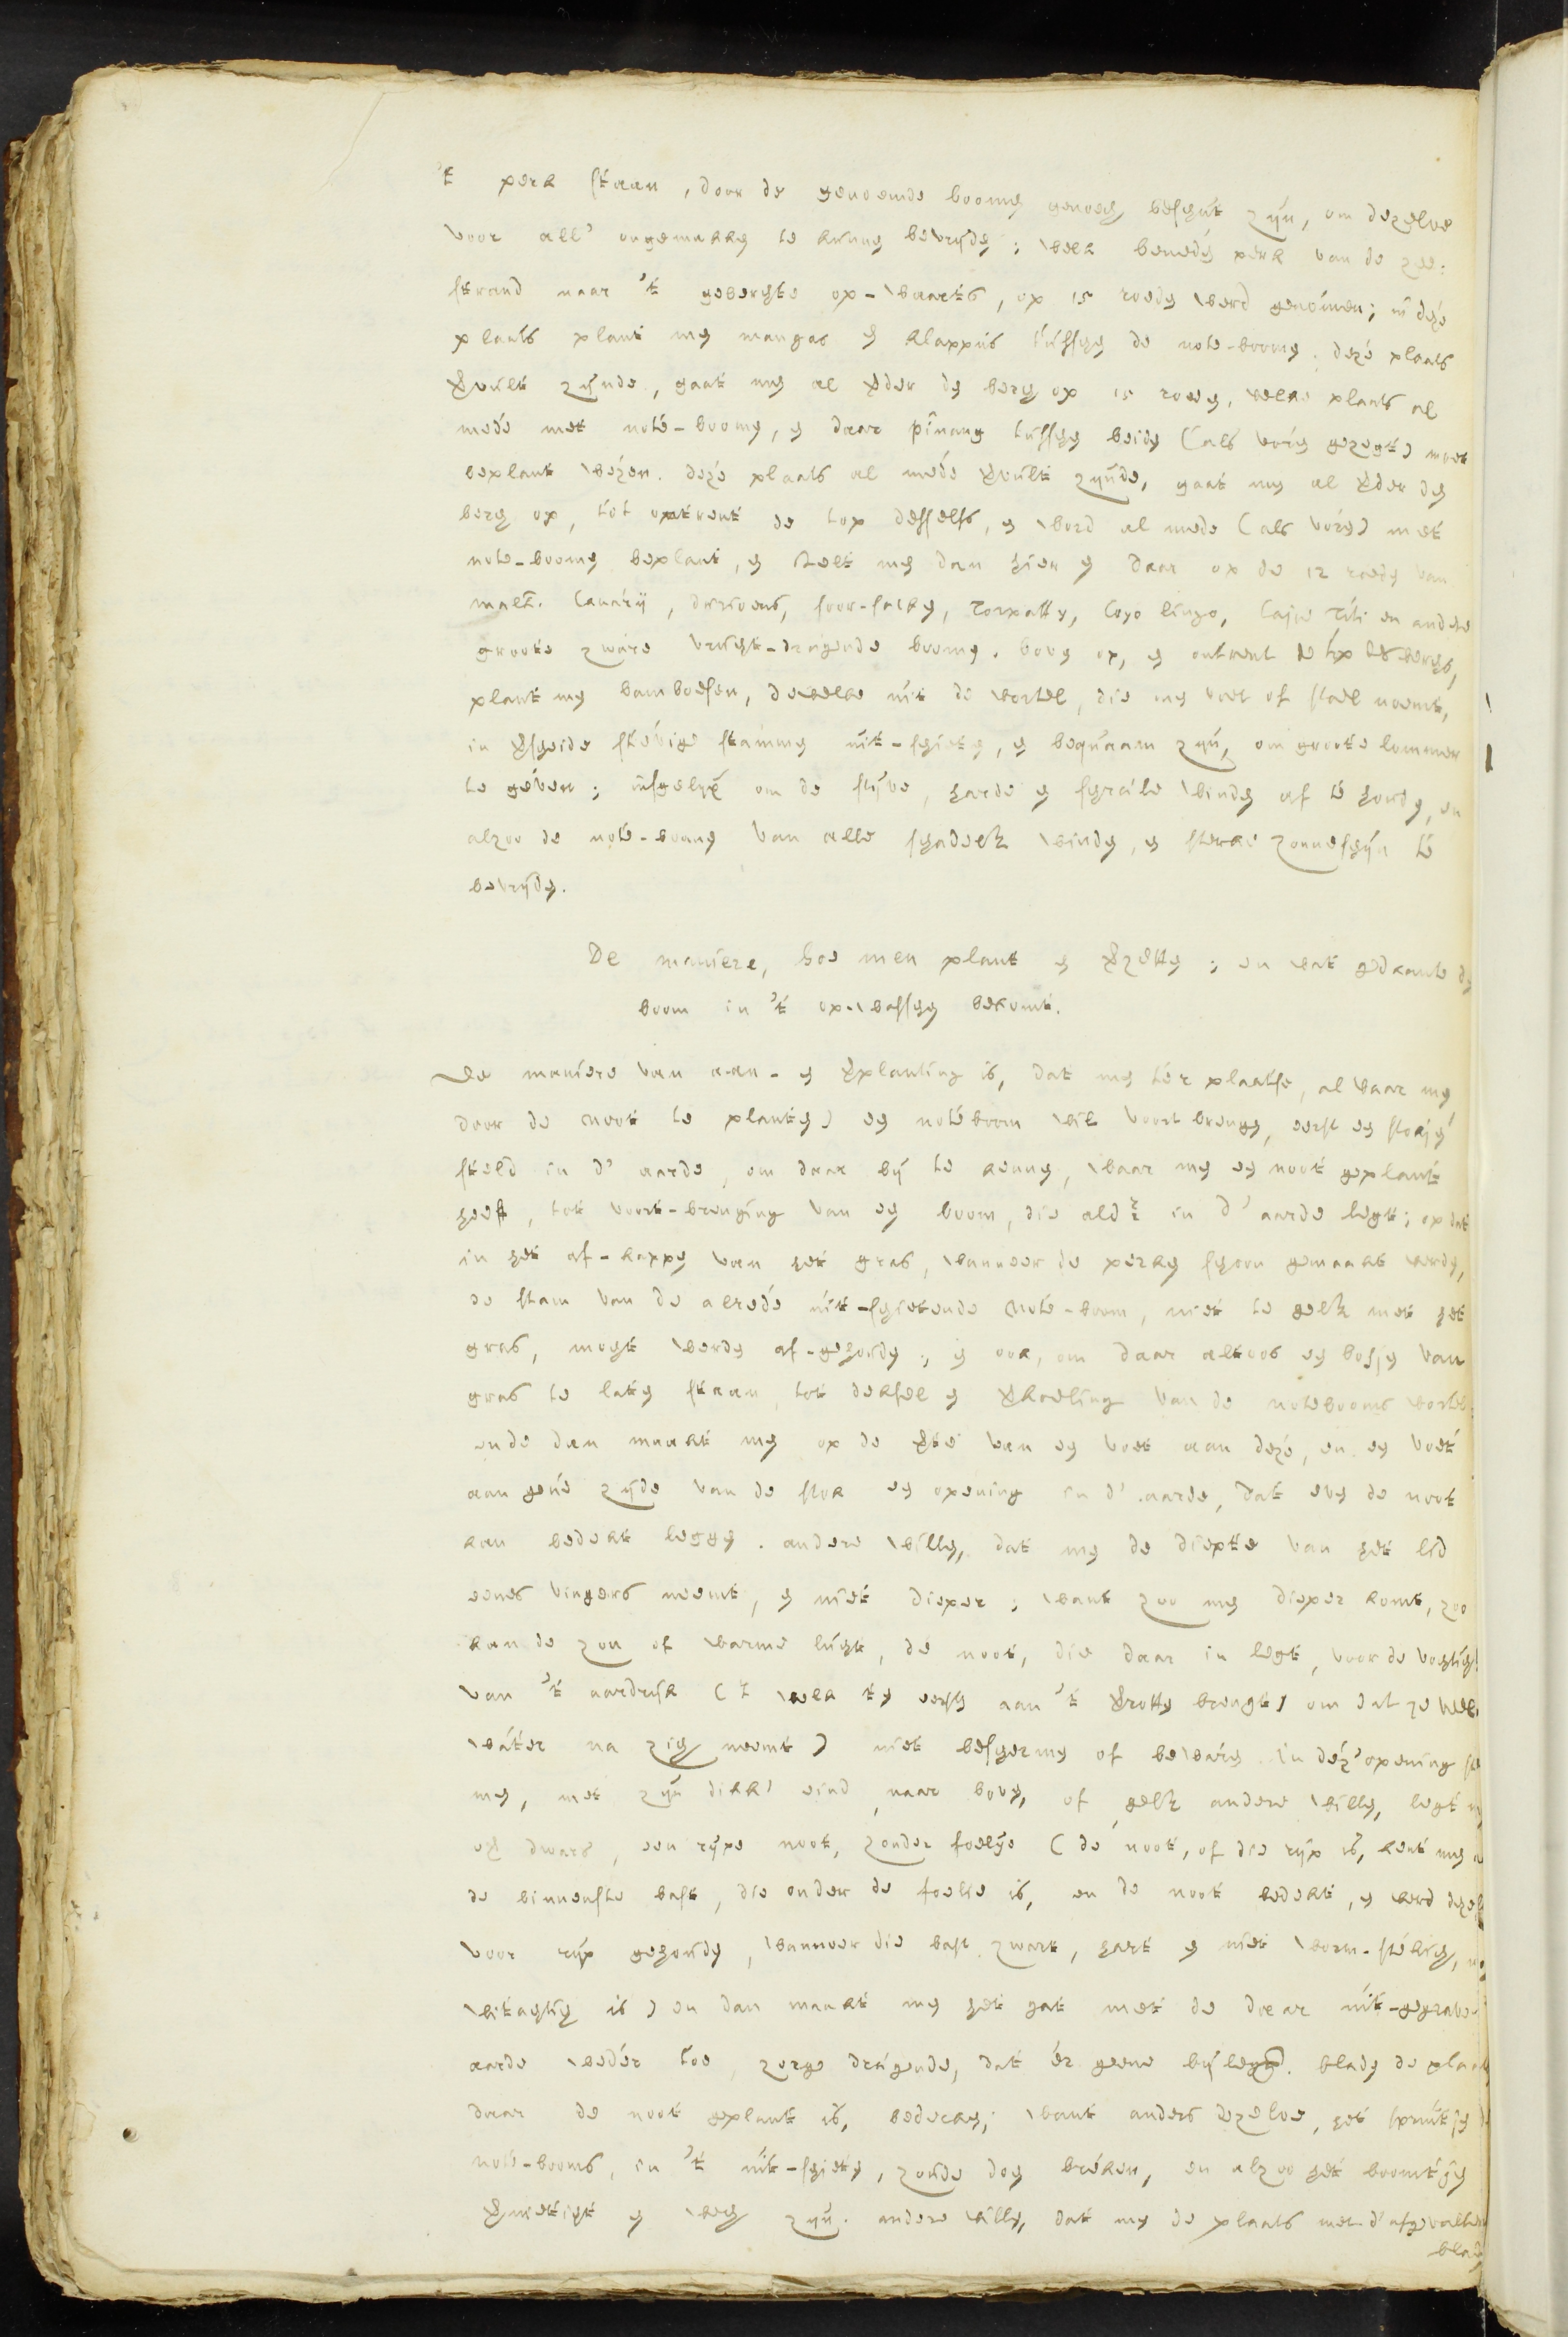 't perk staan, door de genoemde boomen genoech beschut zijn, om dezelve
voor all' ongemakken te kunnen bevrijden; welk beneden perk van de zee-
strand naar 't geberchte op-waarts, op 15 roeden werd genomen; in deze
plaats plant men mangas en klappus tusschen de note-boomen. deze plaats
vervult zijnde, gaat men al verder den berch op 15 roeden, welke plaats al
mede met note-boomen, en daar pinang tusschen beiden (als voren gezegt) moet
beplant wezen. deze plaats al mede vervult zijnde, gaat men al verder den
berch op, tot ontrent de top desselfs, en word al mede (als voren) met
note-boomen beplant, en stelt men dan hier en daar op de 12 roeden van
malk. Canarij, durioens, soor-sacken, Torpatty, Coyo lingo, Caju Titi en andere
groote zware vrucht-dragende boomen. boven op, en ontrent de top des berchs,
plant men bamboesen, dewelke uit de wortel, die men voet of stoel noemt,
in verscheide stevige stammen uit-schieten, en bequaam zijn, om groote lommer
te geven; insgelijx om de stijve, harde en schrale winden af te houden, en
alzoo de note-boomen van alle schadelk winden, en sterke zonneschijn te
bevrijden.
De maniere, hoe men plant en verzetten; en wat gedaante den
boom in 't op-wassen bekomt.
De maniere van aan- en verplanting is, dat men ter plaatse, al waar men
door de noot te planten) een noteboom wil voort brengen, eerst een stokjen
steld in d' aarde, om daar bij te kennen, waar men een noot geplant
heeft, tot voort-brenging van een boom, die aldr in d' aarde legt; op dat
in het af-kappen van het gras, wanneer de perken schoon gemaakt werden,
de stam van de alrede uit-schietende note-boom, niet te gelk met het
gras, mocht werden af-gehouden; en ook, om daar altoos een bosjen van
gras te laten staan, tot deksel en verkoeling van de notebooms wortel
ende dan maakt men op de verte van een voet aan deze, en een voet
aan gene zijde van de stok een opening in d' aarde, dat even de noot
kan bedekt leggen. andere willen, dat men de diepte van het lid
eenes vingers neemt, en niet dieper; want zoo men dieper komt, zoo
kan de zon of warme lucht, de noot, die daar in legt, voor de vochtich
van 't aardrijk ('t welk ten eersten aan 't verrotten brengt) om dat ze veel
water na zich neemt) niet beschermen of bewaren. in dez' opening ste
men, met zijn dikk' eind naar boven, of gelk andere willen, legt men
over dwars, een rijpe noot, zonder foelije (de noot, of die rijp is, kent men a
de binnenste bast, die onder de foelie is, en de noot bedekt, en werd dezel
voor rijp gehouden, wanneer die bast zwart, hart en niet worm-stekich, no
witachtich is) en dan maakt men het gat met de daar uit-gegrave
aarde weder toe, zorge dragende, dat 'er geene bij legg. bladen de plaats
daar de noot geplant is, bedecken; want anders dezelve, het spruitjen de
note-booms, in 't uit-schieten, zoude doen breken, en alzoo het boomtjen
vernietigt en wech zijn. andere willen, dat men de plaats met d' afgevallen
bladen